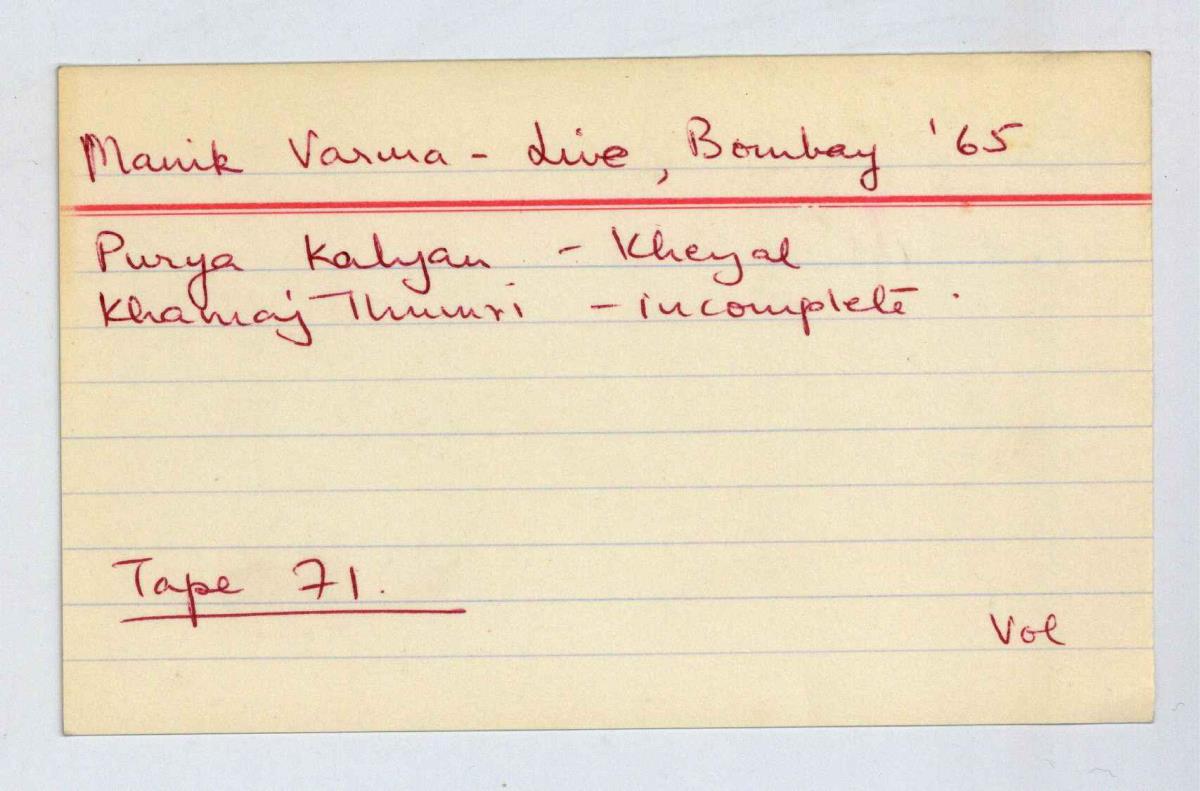 Manik Varma - Live, Bombay '65
Purya Kalyan - Kheyal
Khamaj Thumri - incomplete.
Tape 71.
Vol